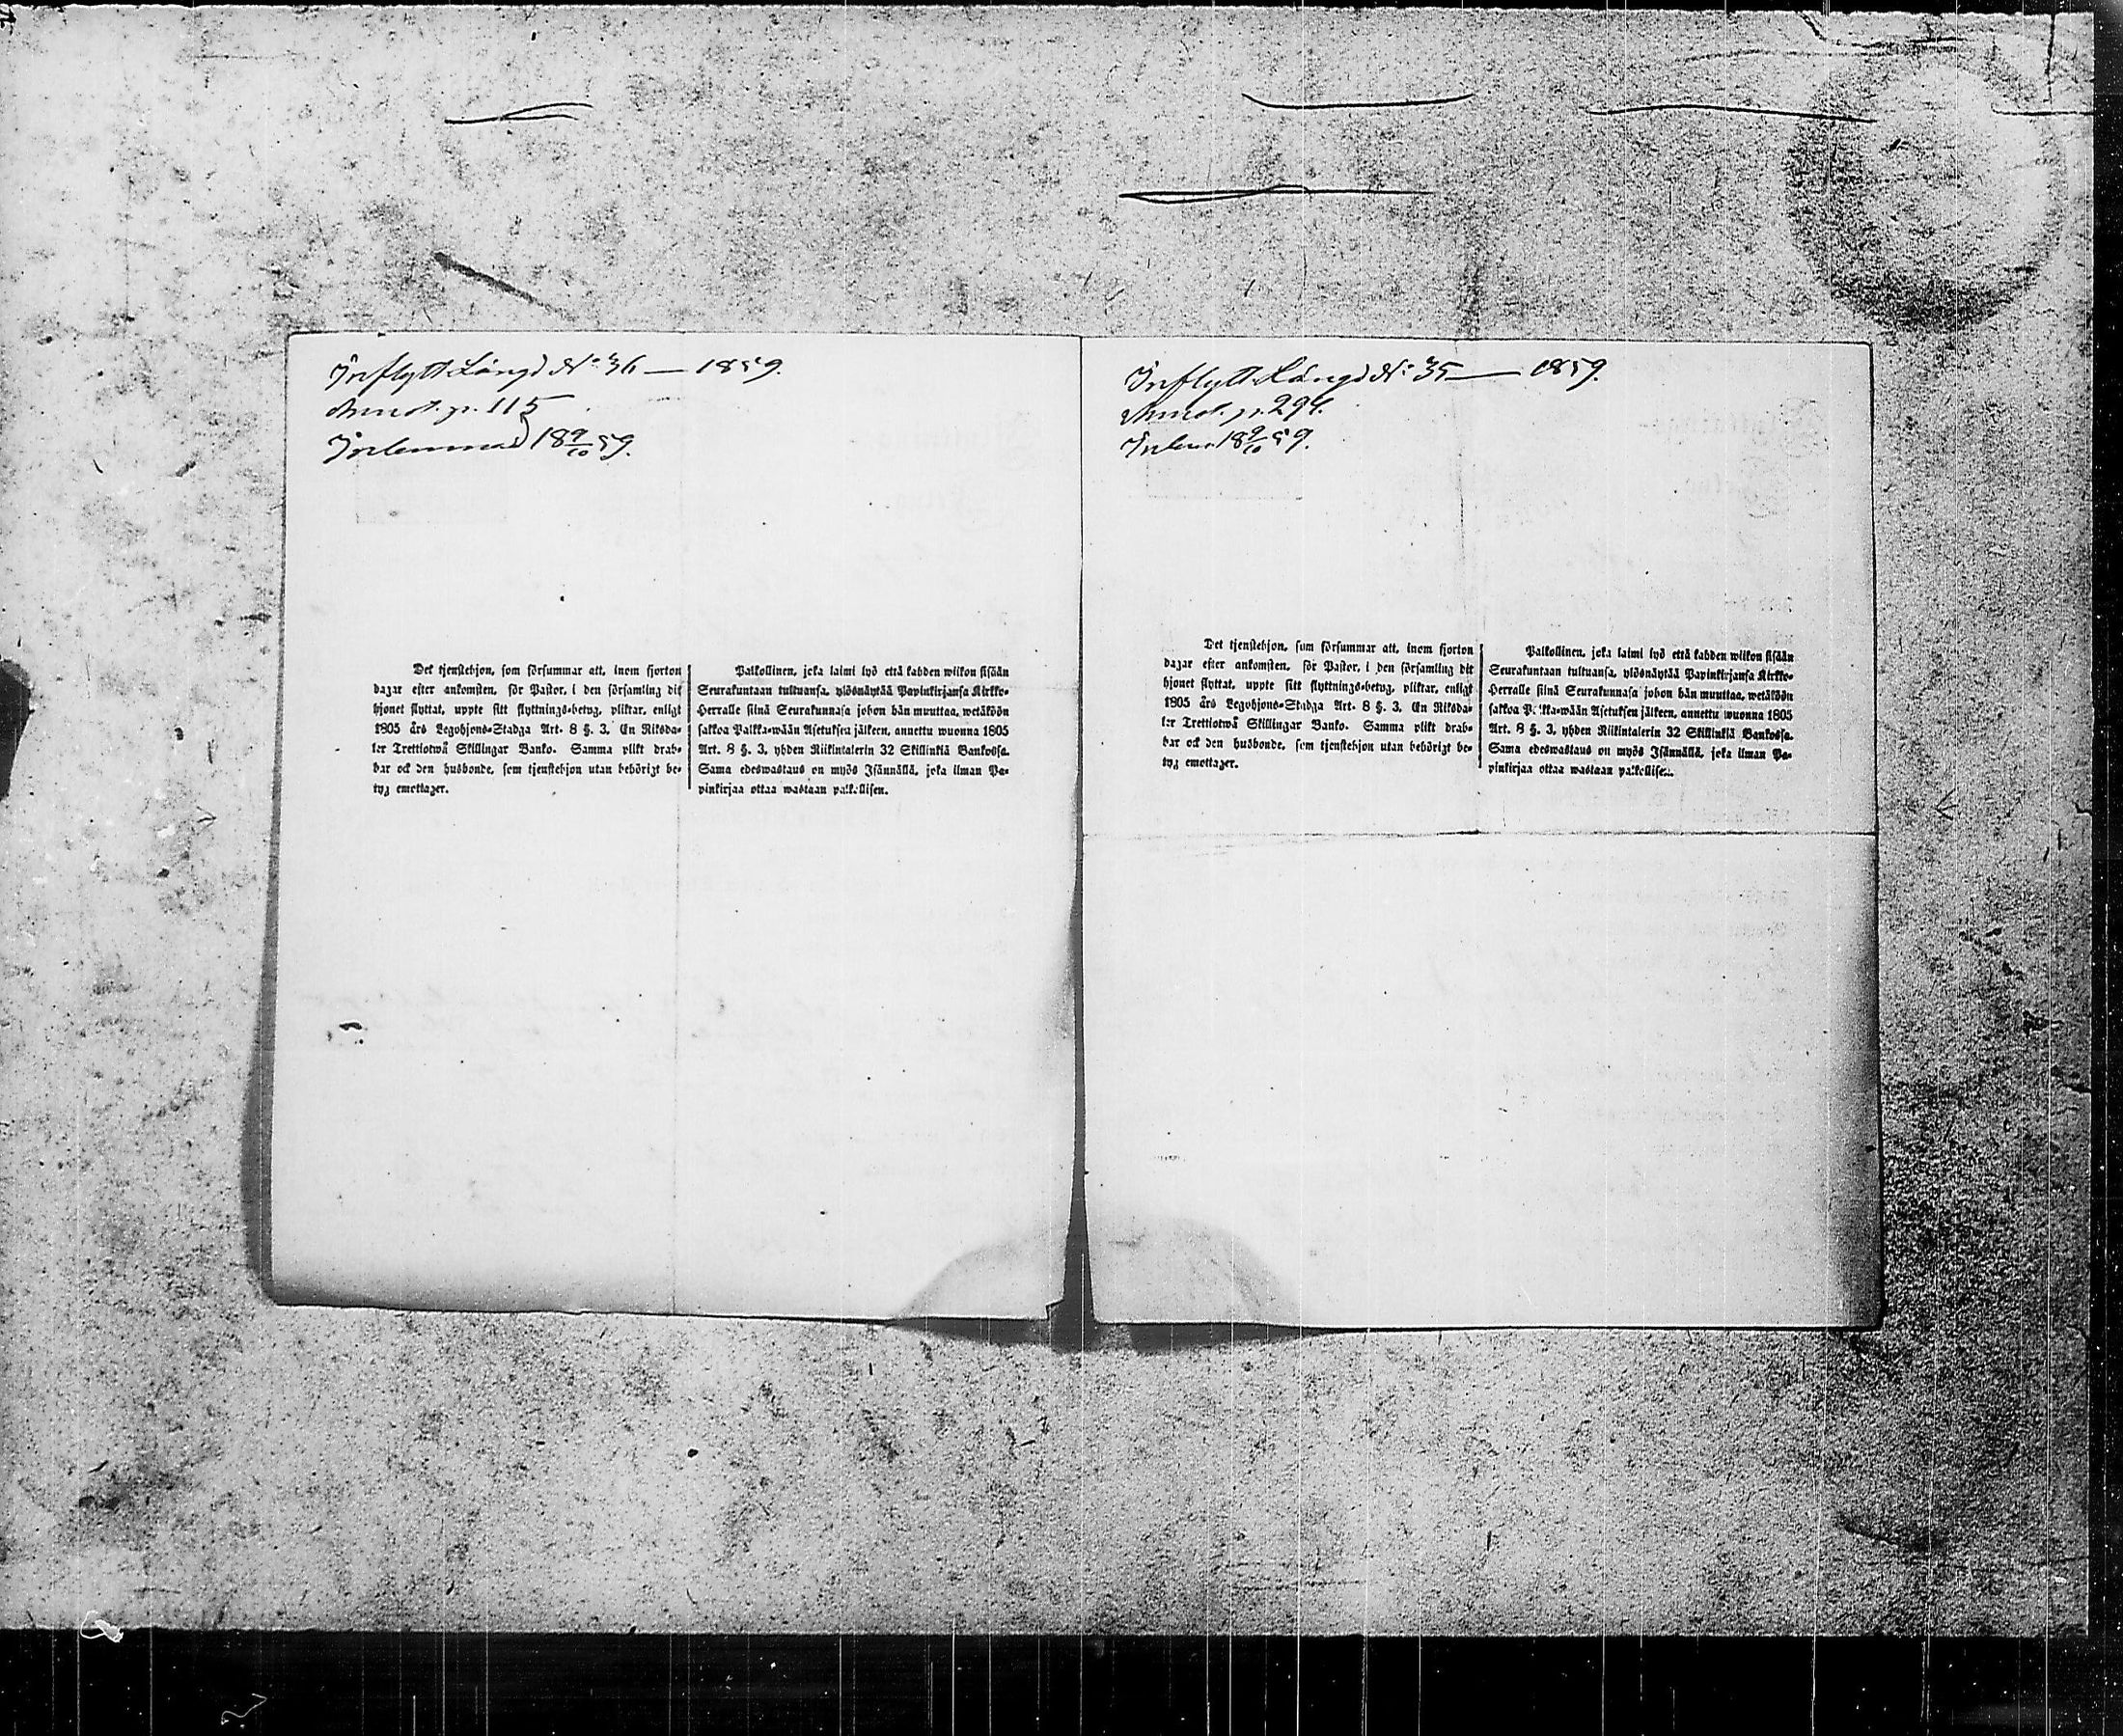 Inflytt.Längd No: 36 — 1859.
Annot. p. 115
Inlemnad 18 9/10 59.
Det tjenstehjon, som försummar att, inom fjorton
dagar efter ankomsten, för Pastor, i den församling dit
hjonet flyttat, uppte sitt flyttnings-betyg, pliktar, enligt
1805 års Legohjons-Stadga Art. 8 §. 3, En Riksda-
ler Trettiotwå Skillingar Banko. Samma plikt drab-
bar ock den husbonde, som tjenstehjon utan behörigt be-
tyg emottager.
Palkollinen, joka laimi lyö että kahden wiikon sisään
Seurakuntaan tultuansa, ylösnäytää Papinkirjansa Kirkko-
Herralle siinä Seurakunnasa johon hän muuttaa, wetäköön
sakkoa Palkka-wään Asetuksen jälkeen, annettu wuonna 1805
Art. 8 §. 3, yhden Riikintalerin 32 Skillinkiä Bankossa.
Sama edeswastaus on myös Isännällä, joka ilman Pa-
pinkirjaa ottaa wastaan palkollisen.
Inflytt.Längd No: 35 — 1859.
Annot. p. 294.
Inlem 18 9/10 59.
Det tjenstehjon, som försummar att, inom fjorton
dagar efter ankomsten, för Pastor, i den församling dit
hjonet flyttat, uppte sitt flyttnings-betyg, pliktar, enligt
1805 års Legohjons-Stadga Art. 8 §. 3, En Riksda-
ler Trettiotwå Skillingar Banko. Samma plikt drab-
bar ock den husbonde, som tjenstehjon utan behörigt be-
tyg emottager.
Palkollinen, joka laimi lyö että kahden wiikon sisään
Seurakuntaan tultuansa, ylösnäytää Papinkirjansa Kirkko-
Herralle siinä Seurakunnasa johon hän muuttaa, wetäköön
sakkoa Palkka-wään Asetuksen jälkeen, annettu wuonna 1805
Art. 8 §. 3, yhden Riikintalerin 32 Skillinkiä Bankossa.
Sama edeswastaus on myös Isännällä, joka ilman Pa-
pinkirjaa ottaa wastaan palkollisen.